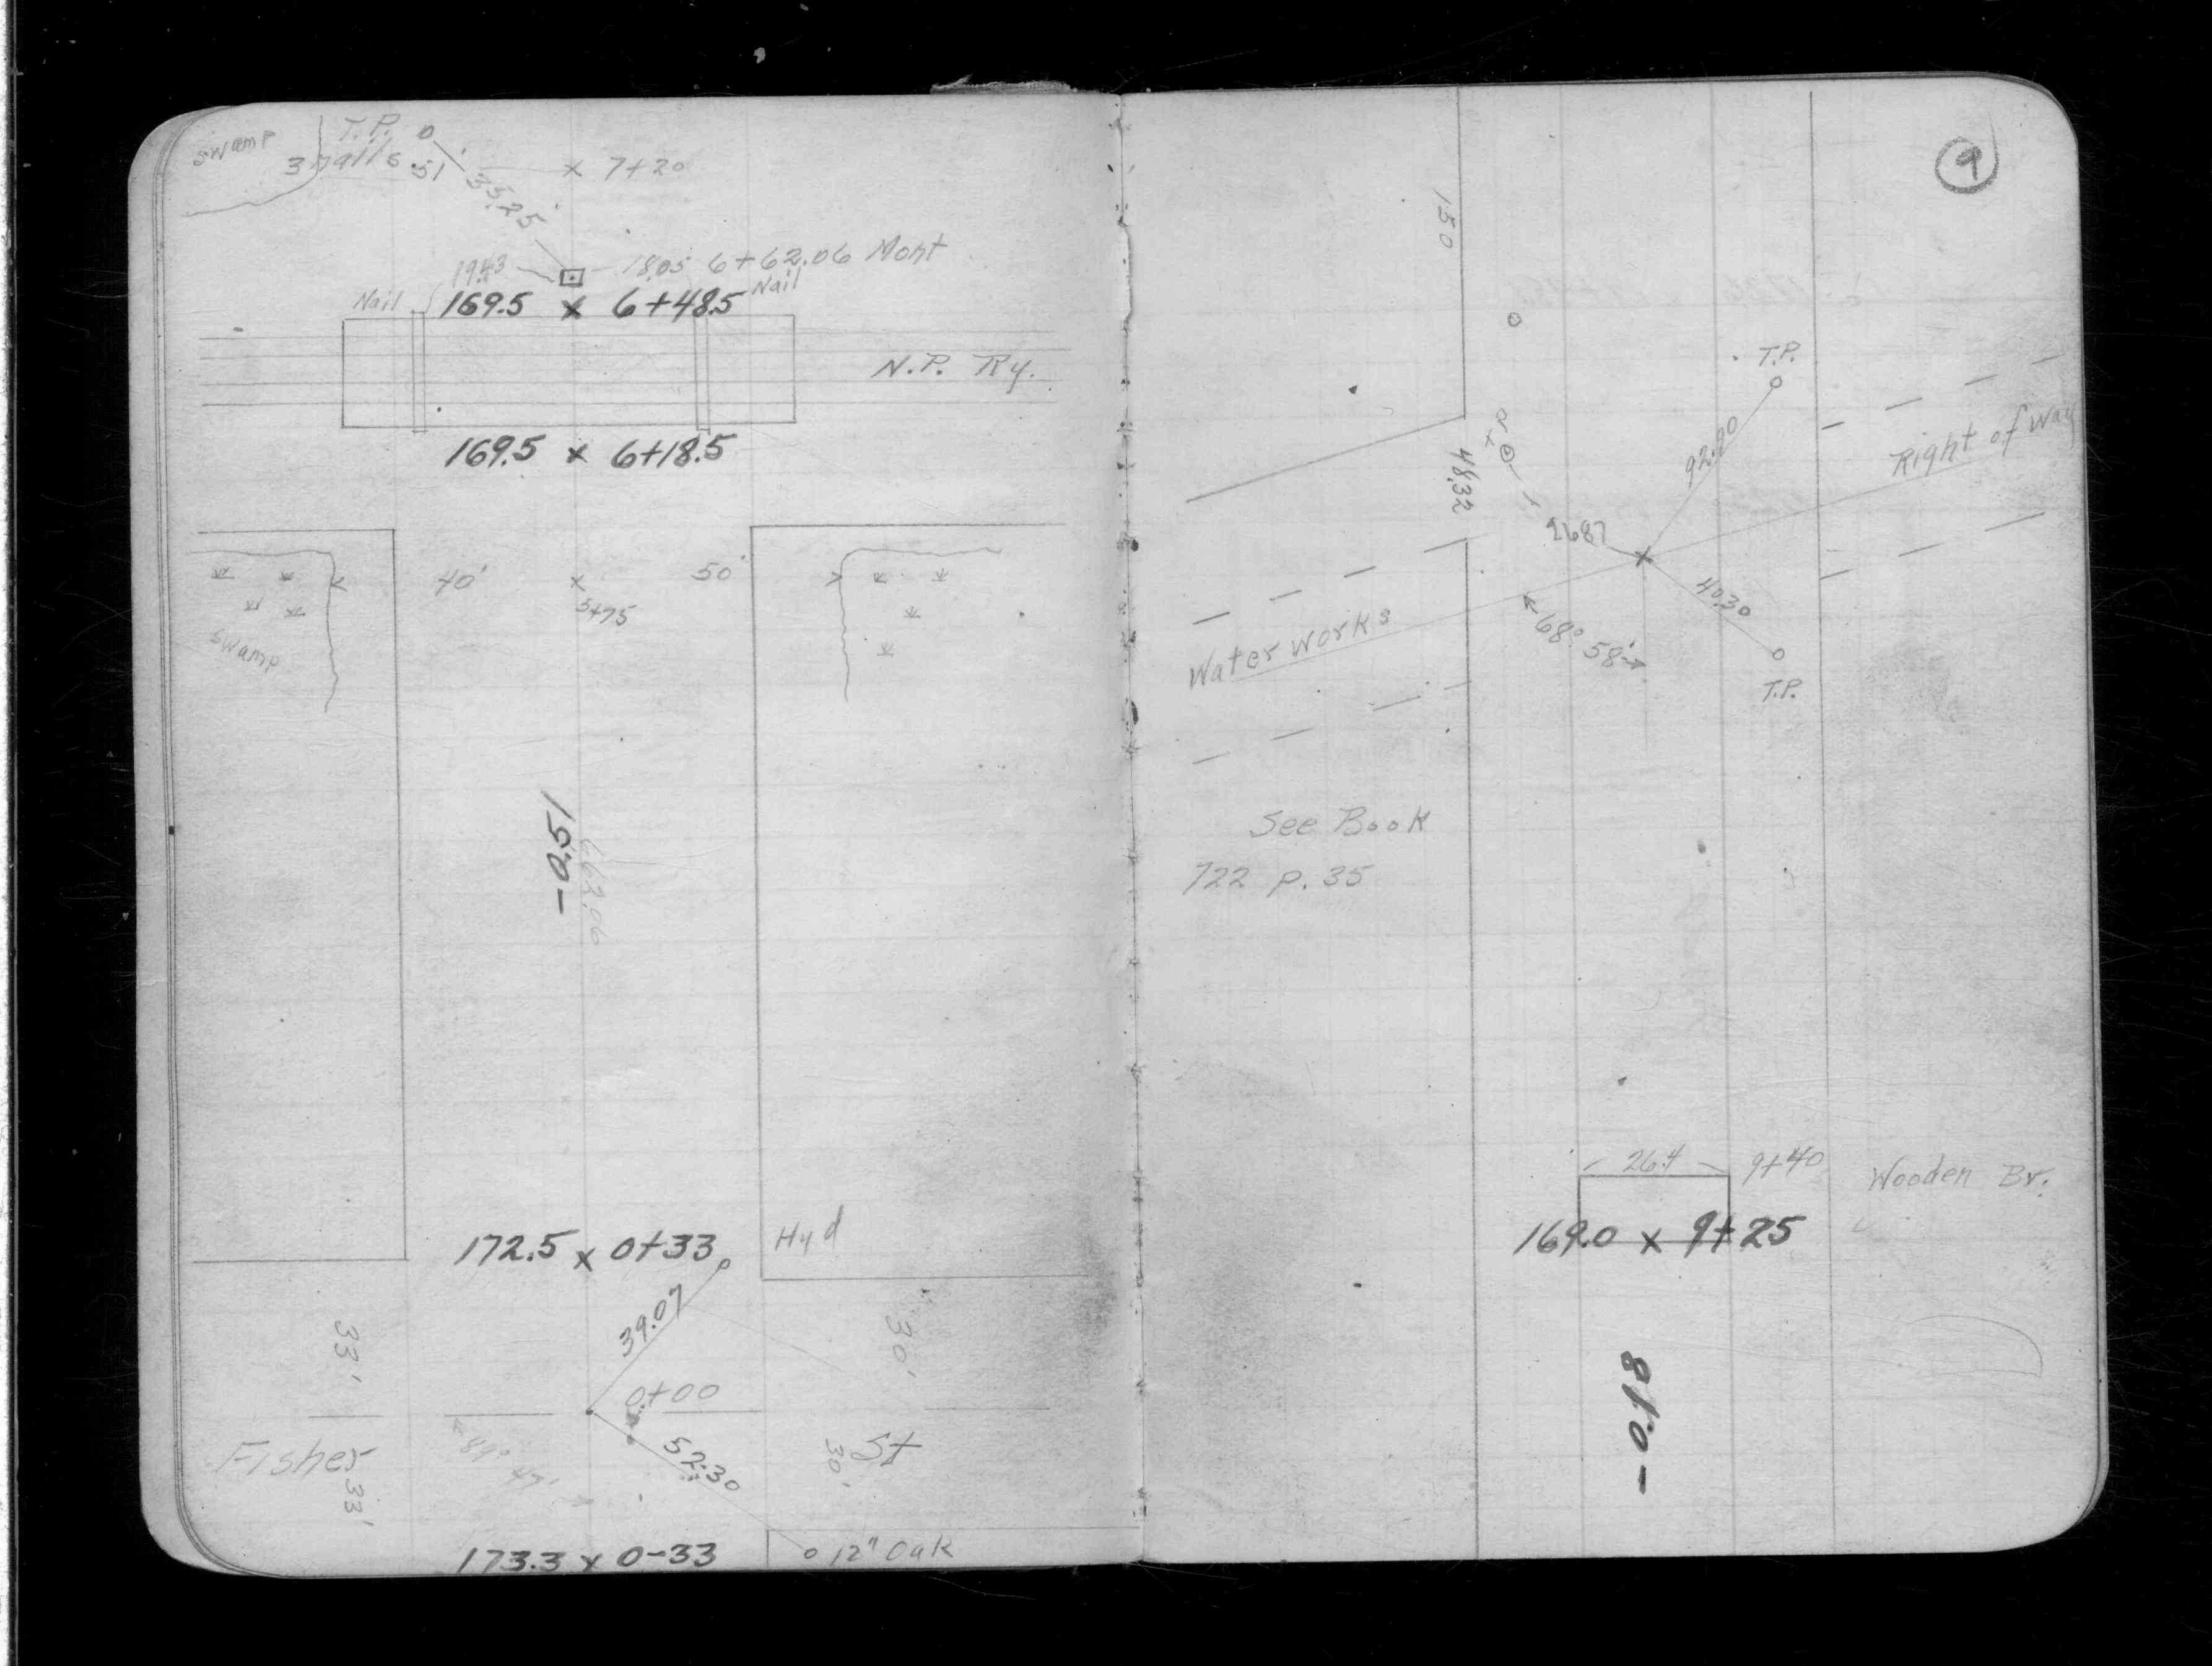 swamp
T.P.
3 nails .51
x 7+20
35.25
19.43
18.05 6+62.06 Mont
Nail
Nail
169.5 x 6+48.5
N.P. Ry.
169.5 x 6+18.5
40'
x
5+75
50'
swamp
-0.51
662.06
172.5 x 0+33
Hyd
39.07
33'
30'
0+00
Fisher
St
52.30
33'
30'
173.3 x 0-33
12" Oak
9
150
T.P.
92.20
Right of Way
48.32
40.30
68° 58'
Water Works
T.P.
See Book
722 p. 35
26.4
9+40
Wooden Br.
169.0 x 9+25
-0.18